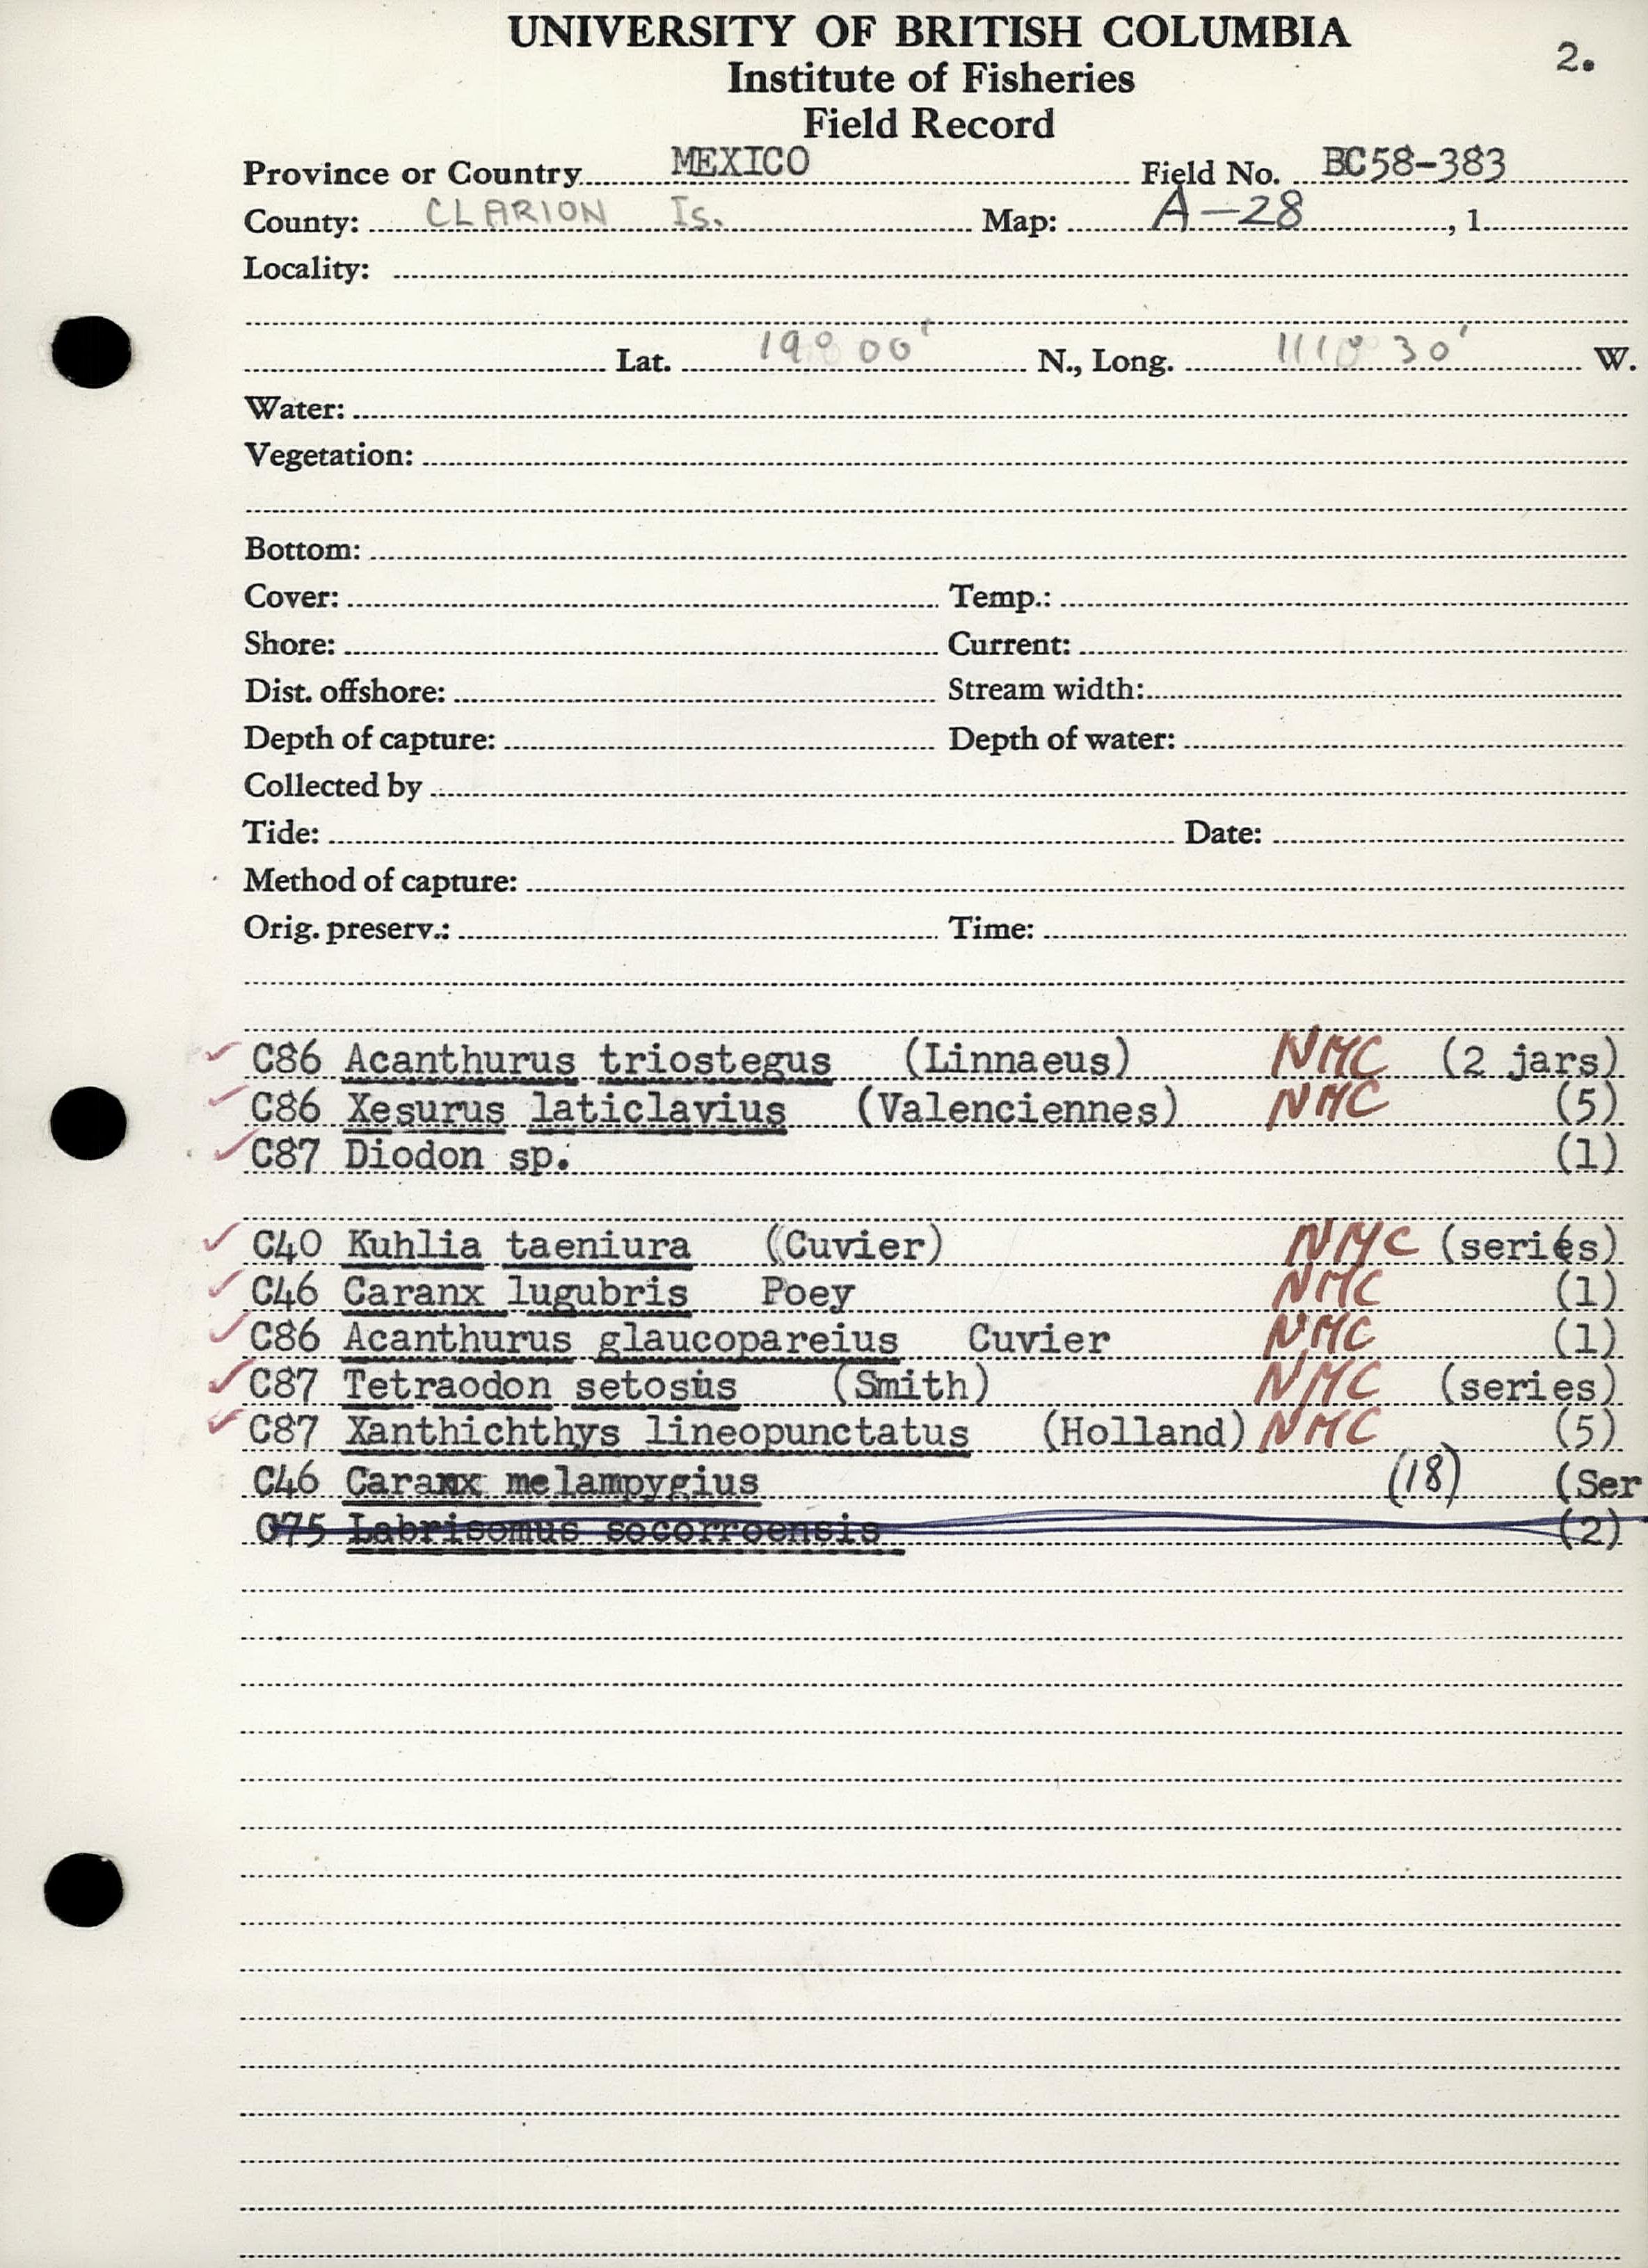 UNIVERSITY OF BRITISH COLUMBIA
2.
Institute of Fisheries
Field Record
Province or Country MEXICO Field No. BC58-383
County: CLARION Is. Map: A-28, 1.
Locality:
Lat. 19° 00' N., Long. 111° 30' W.
Water:
Vegetation:
Bottom:
Cover: Temp.:
Shore: Current:
Dist. offshore: Stream width:
Depth of capture: Depth of water:
Collected by
Tide: Date:
Method of capture:
Orig. preserv.: Time:
✓ C86 Acanthurus triostegus (Linnaeus) NMC (2 jars)
✓ C86 Xesurus laticlavius (Valenciennes) NMC (5)
✓ C87 Diodon sp. (1)
✓ C40 Kuhlia taeniura (Cuvier) NMC (series)
✓ C46 Caranx lugubris Poey NMC (1)
✓ C86 Acanthurus glaucopareius Cuvier NMC (1)
✓ C87 Tetraodon setosus (Smith) NMC (series)
✓ C87 Xanthichthys lineopunctatus (Holland) NMC (5)
C46 Caranx melampygius (18) (Ser
C75 Labrisomus socorroensis (2)